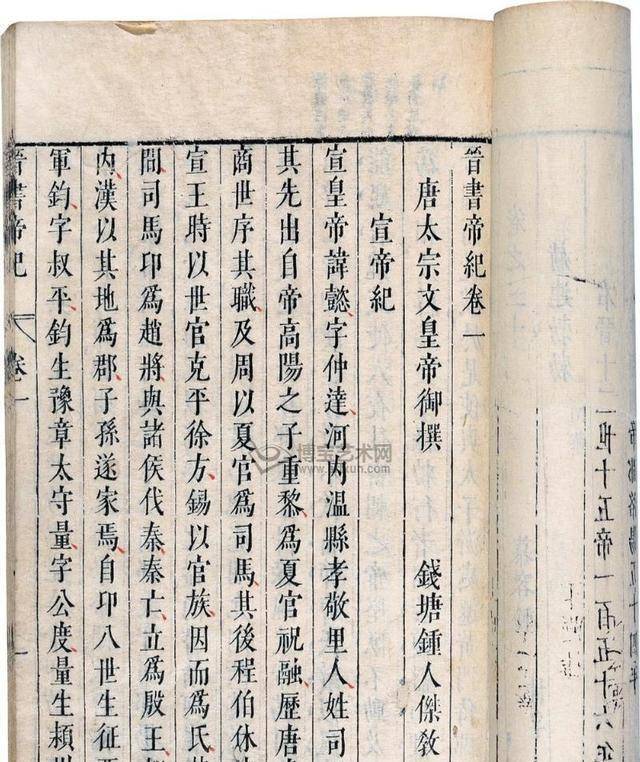 晉書帝紀卷一
唐太宗文皇帝御撰 錢塘鍾人傑敎
宣帝紀
宣皇帝諱懿字仲達河內溫縣孝敬里人姓司
其先出自帝高陽之子重黎爲夏官祝融歷唐
商世序其職及周以夏官爲司馬其後程伯休
宣王時以世官克平徐方錫以官族因而爲氏
間司馬卬爲趙將與諸侯伐秦秦亡立爲殷王
內漢以其地爲郡子孫遂家焉自卬八世生征西
軍鈞字叔平鈞生豫章太守量字公度量生潁川
晉書帝紀 卷一
世十五帝一百五十六年
博宝艺术网